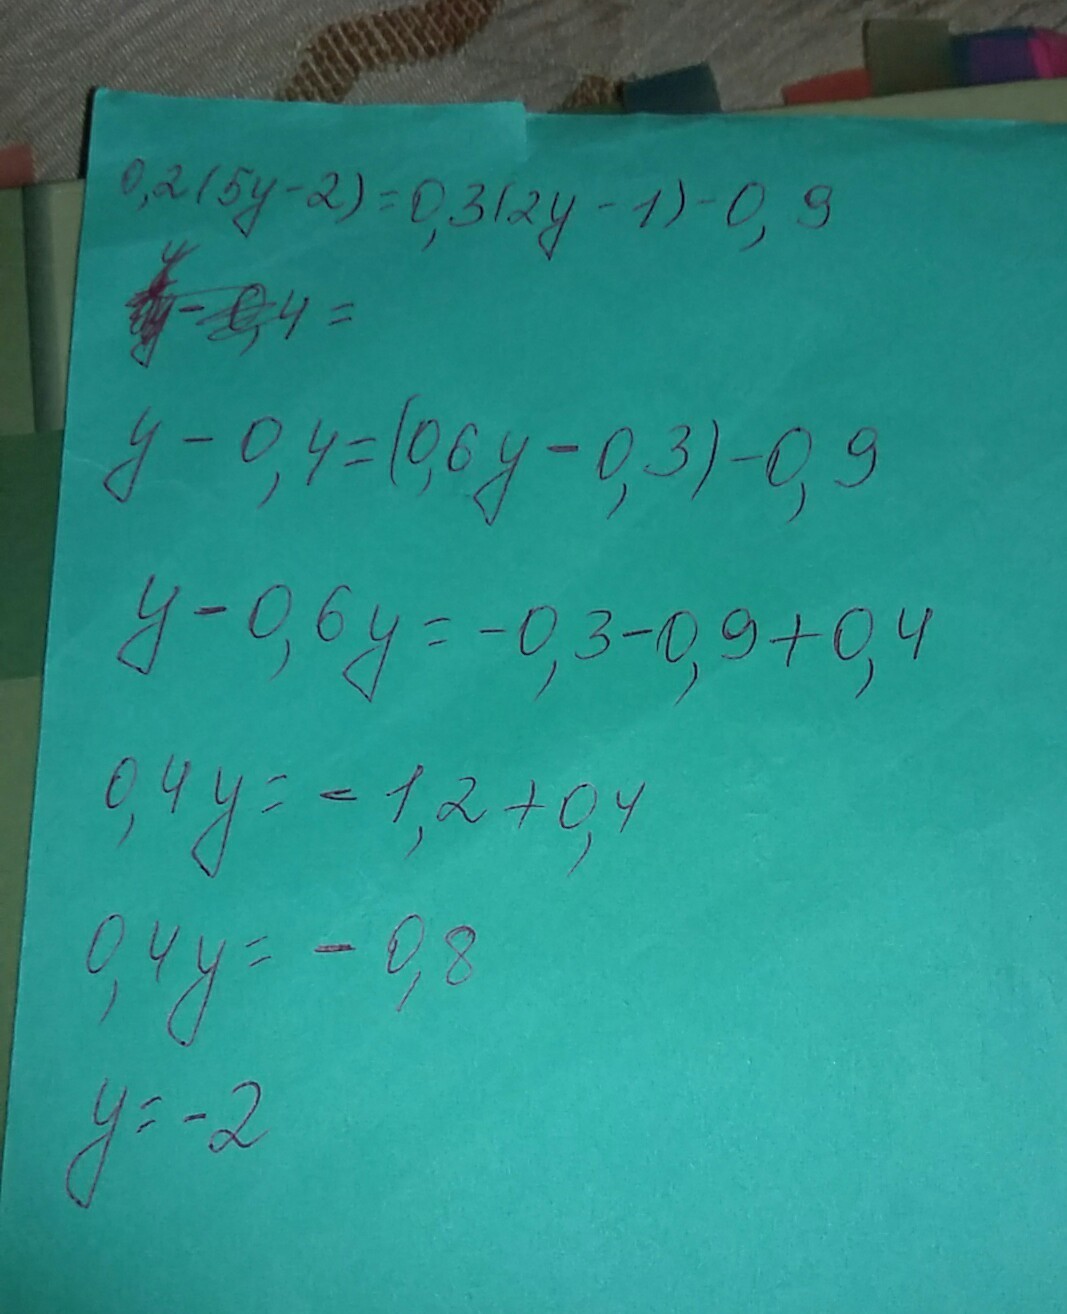 0,2(5y-2)=0,3(2y-1)-0,9
y-0,4=
y-0,4=(0,6y-0,3)-0,9
y-0,6y=-0,3-0,9+0,4
0,4y=-1,2+0,4
0,4y=-0,8
y=-2